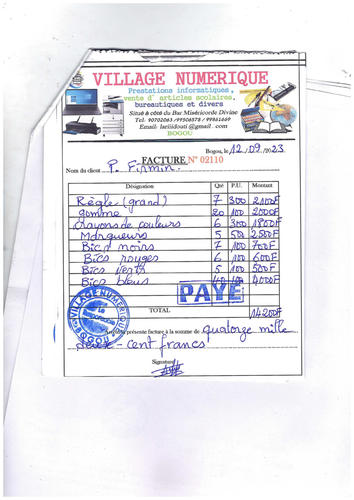 VILLAGE NUMERIQUE
Prestations informatiques,
vente d' articles scolaires,
bureautiques et divers
Situé à côté du Bar Miséricorde Divine
BOGOU
Bogou, le 12/09/2023
FACTURE N° 02110
Nom du client P. Firmin
Désignation Qté P.U. Montant
Règle (grand) 7 300 2100F
gomme 20 100 2000F
crayons de couleurs 6 300 1800F
Marqueurs 5 500 2500F
Bics noirs 7 100 700F
Bics rouges 6 100 600F
Bics verts 5 100 500F
Bics bleus 100 4000F
PAYÉ
TOTAL 14200F
VILLAGE NUMERIQUE
BOGOU
présente facture à la somme de quatorze mille
- cent francs
Signature